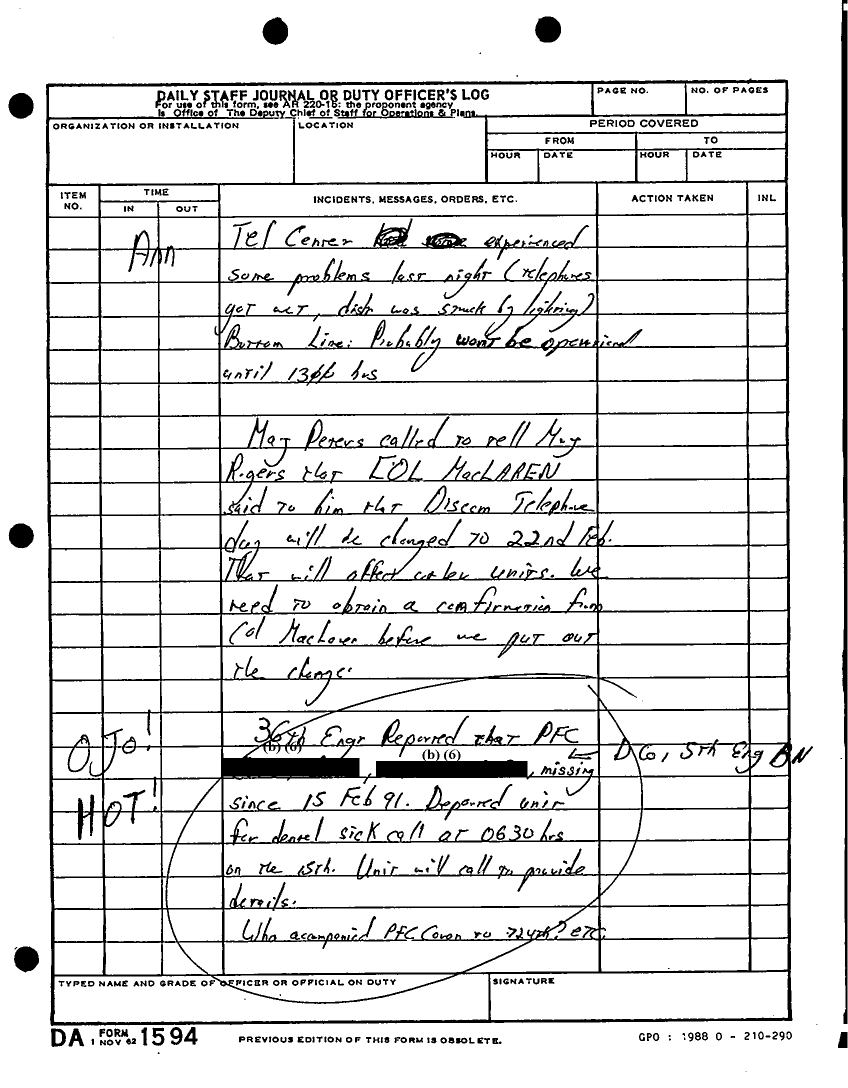 DAILY STAFF JOURNAL OR DUTY OFFICER'S LOG
For use of this form, see AR 220-15: the proponent agency
is Office of The Deputy Chief of Staff for Operations & Plans.
PAGE NO.
NO. OF PAGES
ORGANIZATION OR INSTALLATION
LOCATION
PERIOD COVERED
FROM
TO
HOUR
DATE
HOUR
DATE
ITEM NO.
TIME
IN
OUT
INCIDENTS, MESSAGES, ORDERS, ETC.
ACTION TAKEN
INL
Ann
Tel Center experienced
some problems last night (telephones
got wet, dish was struck by lighting)
Bottom Line: Probably wont be
until 1300 hrs
Maj Peters called to tell Maj
Rogers that COL MacLAREN
said to him that Discom Telephone
day will be changed to 22nd Feb.
That will affect other units. We
need to obtain a confirmation from
Col Maclaren before we put out
the change.
OJO!
HOT!
36th Engr Reported that PFC
(b) (6)
(b) (6)
, , missing
D Co, 5th Eng BN
since 15 Feb 91. Departed unit
for dental sick call at 0630 hrs
on the 15th. Unit will call to provide
details.
Who acompanied PFC to 724th? etc.
TYPED NAME AND GRADE OF OFFICER OR OFFICIAL ON DUTY
SIGNATURE
DA FORM 1594
1 NOV 62
PREVIOUS EDITION OF THIS FORM IS OBSOLETE.
GPO : 1988 O - 210-290